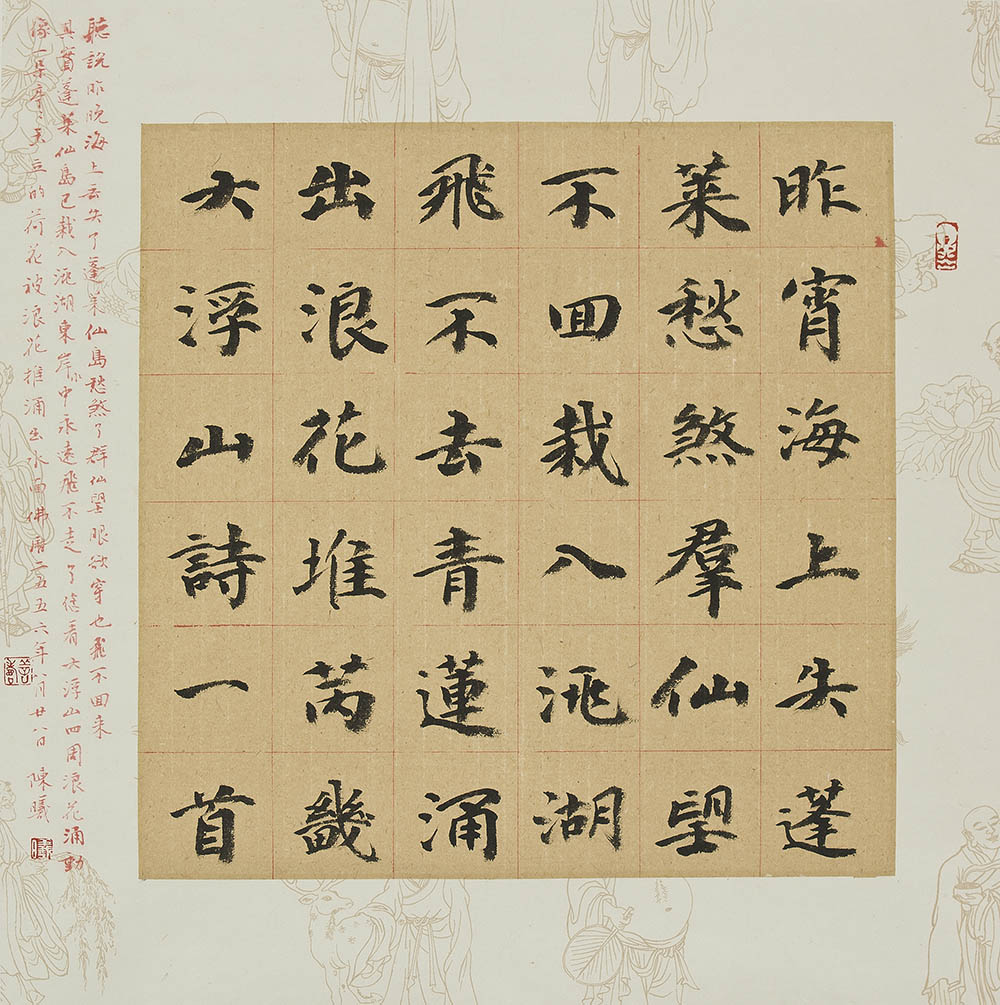 昨宵海上失蓬
萊愁煞羣仙朢
不囬栽入洮湖
飛不去青蓮涌
出浪花堆芮畿
大浮山詩一首
聽說昨晚海上丟失了蓬萊仙島愁煞了群仙望眼欲穿也飛不回来
其實蓬萊仙島已栽入洮湖東岸中永遠飛不走了您看大浮山四周浪花涌動
像一朵亭々玉立的荷花被浪花推涌出水面佛曆二五五六年八月廿八日 陳曦